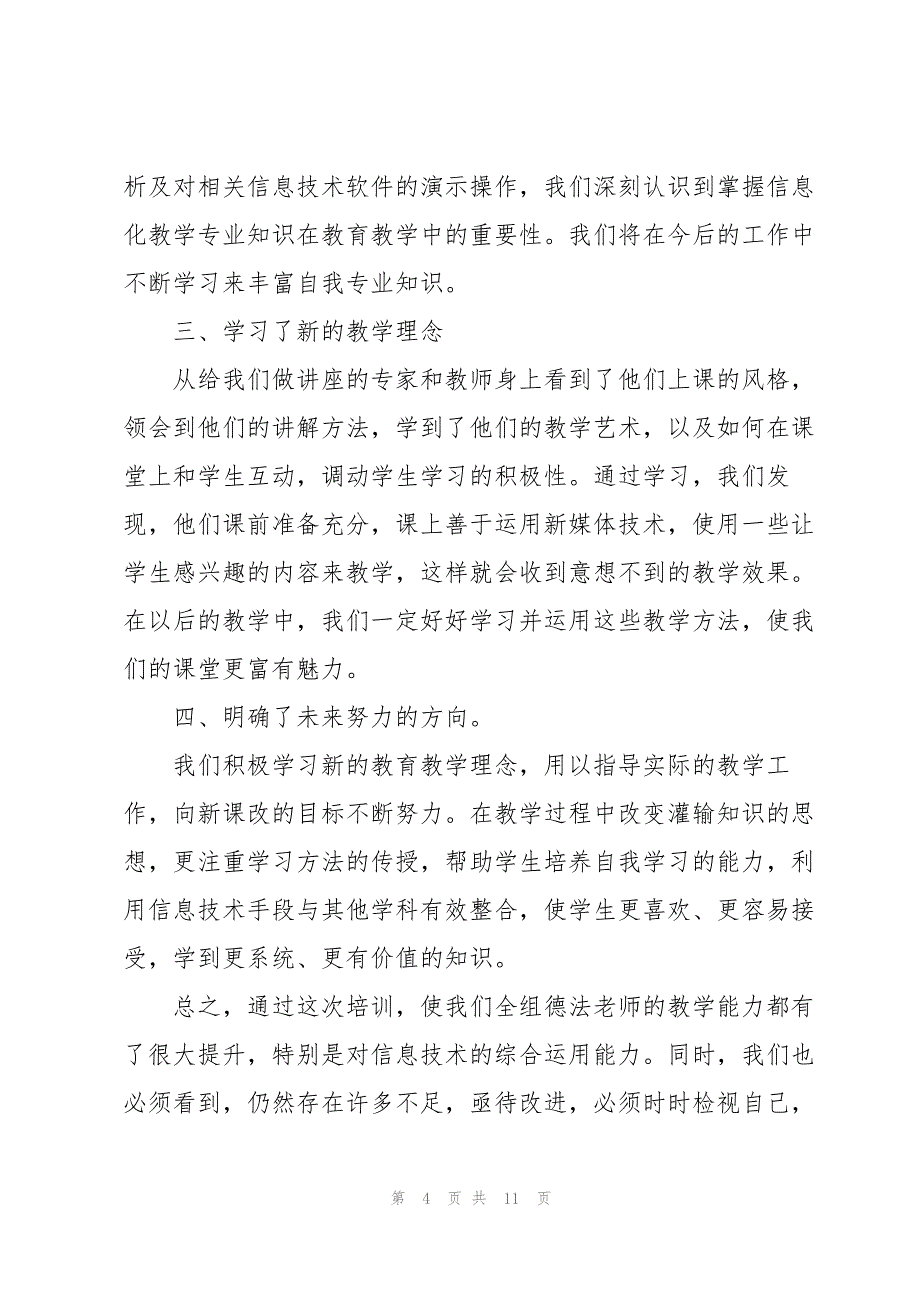 析及对相关信息技术软件的演示操作，我们深刻认识到掌握信息
化教学专业知识在教育教学中的重要性。我们将在今后的工作中
不断学习来丰富自我专业知识。
三、学习了新的教学理念
从给我们做讲座的专家和教师身上看到了他们上课的风格，
领会到他们的讲解方法，学到了他们的教学艺术，以及如何在课
堂上和学生互动，调动学生学习的积极性。通过学习，我们发
现，他们课前准备充分，课上善于运用新媒体技术，使用一些让
学生感兴趣的内容来教学，这样就会收到意想不到的教学效果。
在以后的教学中，我们一定好好学习并运用这些教学方法，使我
们的课堂更富有魅力。
四、明确了未来努力的方向。
我们积极学习新的教育教学理念，用以指导实际的教学工
作，向新课改的目标不断努力。在教学过程中改变灌输知识的思
想，更注重学习方法的传授，帮助学生培养自我学习的能力，利
用信息技术手段与其他学科有效整合，使学生更喜欢、更容易接
受，学到更系统、更有价值的知识。
总之，通过这次培训，使我们全组德法老师的教学能力都有
了很大提升，特别是对信息技术的综合运用能力。同时，我们也
必须看到，仍然存在许多不足，亟待改进，必须时时检视自己，
第 4 页 共 11 页